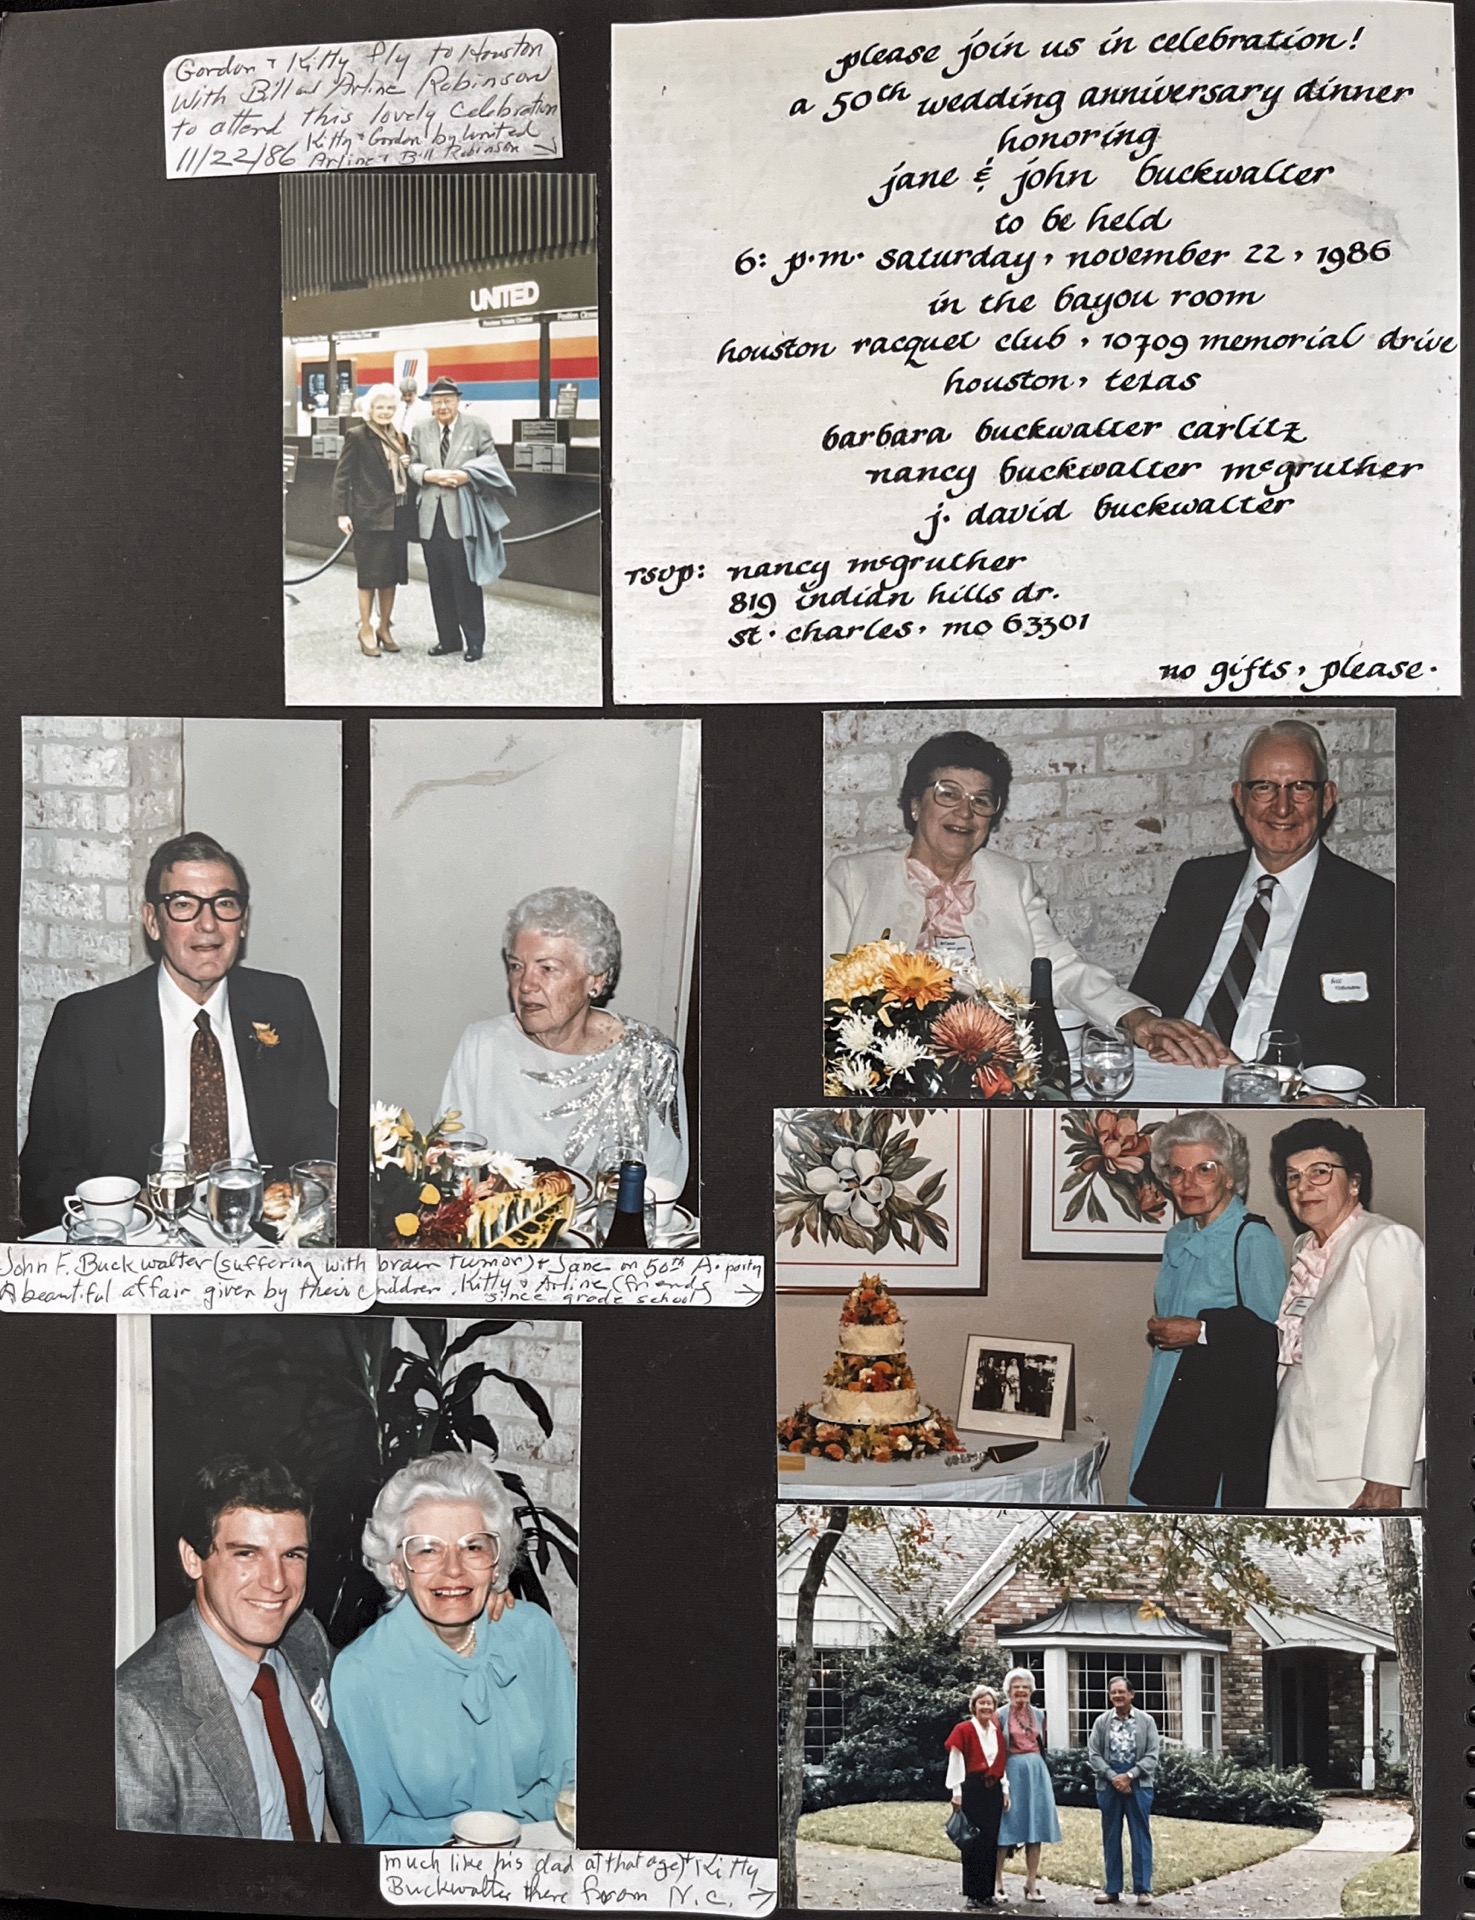 Gordon + Kitty fly to Houston
With Bill and Arline Robinson
to attend this lovely Celebration
11/22/86 Kitty + Gordon by United
Arline + Bill Robinson →
please join us in celebration!
a 50th wedding anniversary dinner
honoring
jane & john buckwalter
to be held
6: p.m. saturday, november 22, 1986
in the bayou room
houston racquet club, 10709 memorial drive
houston, texas
barbara buckwalter carlitz
nancy buckwalter mcgruther
j. david buckwalter
rsvp: nancy mcgruther
819 indian hills dr.
st. charles, mo 63301
no gifts, please.
UNITED
Bill
Robinson
John F. Buckwalter (suffering with brain tumor) + Jane on 50th A. party
A beautiful affair given by their children. Kitty + Arline (friends
since grade school) →
much like his dad at that age) + Kitty
Buckwalter there from N.C. →